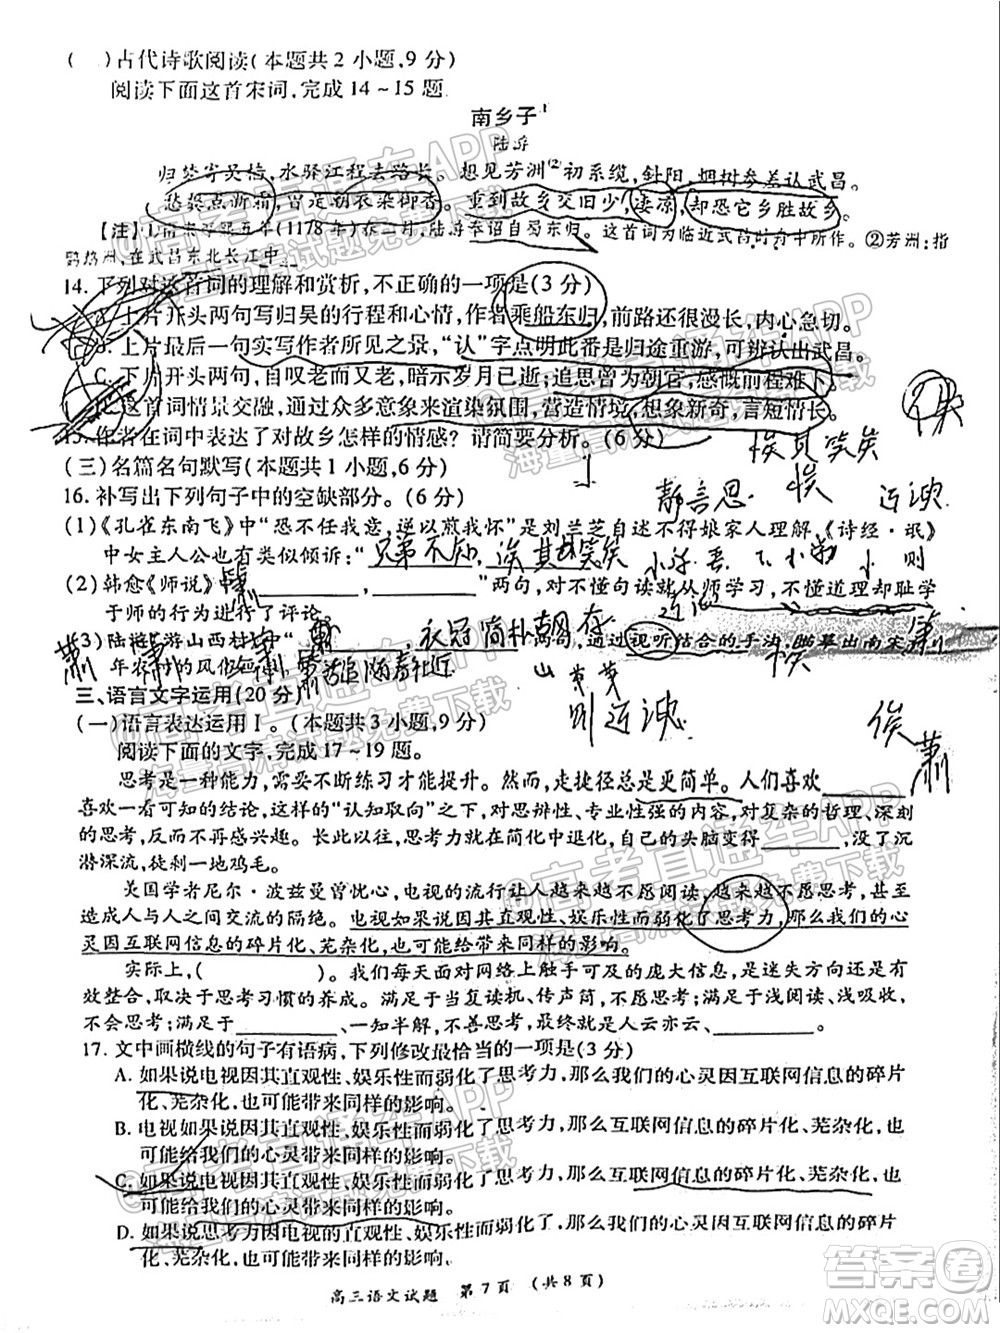 ( )古代诗歌阅读(本题共2小题,9分)
阅读下面这首宋词,完成14~15题
南乡子
陆游
归梦寄吴樯,水驿江程去路长。想见芳洲⑵初系缆,斜阳,烟树参差认武昌。
愁鬓点新霜,曾是朝衣染御香。重到故乡交旧少,凄凉,却恐它乡胜故乡。
五年(1178年)在二月,陆游奉诏自蜀东归。这首词为临近武昌时舟中所作。②芳洲:指
鹦鹉洲,在武昌东北长江中
14.下列对这首词的理解和赏析,不正确的一项是(3分)
上片开头两句写归吴的行程和心情,作者乘船东归,前路还很漫长,内心急切。
上片最后一句实写作者所见之景,“认”字点明此番是归途重游,可辨认出武昌。
C.下片开头两句,自叹老而又老,暗示岁月已逝;追思曾为朝官,感慨前程难卜
这首词情景交融,通过众多意象来渲染氛围,营造情境,想象新奇,言短情长。
15.作者在词中表达了对故乡怎样的情感?请简要分析。(6分)
咥其笑矣
(三)名篇名句默写(本题共1小题,6分)
静言思
16.补写出下列句子中的空缺部分。(6分)
(1)《孔雀东南飞》中“恐不任我意,逆以煎我怀”是刘兰芝自述不得娘家人理解,《诗经·氓》
中女主人公也有类似倾诉:“兄弟不知,咥其笑矣
(2)韩愈《师说》中“________,________”两句,对不懂句读就从师学习,不懂道理却耻学
于师的行为进行了评论
3)陆游《游山西村》中“ 衣冠简朴古风存,通过视听结合的手法,描摹出南宋
年农村的风俗 箫鼓追随春社近
三、语言文字运用(20分)
(一)语言表达运用Ⅰ。(本题共3小题,9分)
阅读下面的文字,完成17~19题。
思考是一种能力,需要不断练习才能提升。然而,走捷径总是更简单。人们喜欢________
喜欢一看可知的结论,这样的“认知取向”之下,对思辨性、专业性强的内容,对复杂的、深刻
的思考,反而不再感兴趣。长此以往,思考能力就在简化中退化,自己的头脑变得________,没了沉
潜深流,徒剩一地鸡毛。
美国学者尼尔·波兹曼曾忧心,电视的流行让人越来越不愿阅读,越来越不愿思考,最终造
成人与人之间交流的隔绝。电视如果说因其直观性、娱乐性而弱化了思考力,那么我们的心
灵因互联网信息的碎片化、芜杂化,也可能给带来同样的影响。
实际上,( )。我们每天面对网络上触手可及的庞大信息,是迷失方向还是有
效整合,取决于思考习惯的养成。满足于当复读机、传声筒,满足于浅阅读、浅吸收,而
不会思考,满足于________、一知半解,不愿思考,最终就是人云亦云、________。
17.文中画横线的句子有语病,下列修改最恰当的一项是(3分)
A.如果说电视因其直观性、娱乐性而弱化了思考力,那么我们的心灵因互联网信息的碎片
化、芜杂化,也可能带来同样的影响。
B.电视如果说因其直观性、娱乐性而弱化了思考力,那么互联网信息的碎片化、芜杂化,也
可能给我们的心灵带来同样的影响。
C.如果说电视因其直观性、娱乐性而弱化了思考力,那么互联网信息的碎片化、芜杂化,也
可能给我们的心灵带来同样的影响。
D.如果说思考力因电视的直观性、娱乐性而弱化了,那么我们的心灵因互联网信息的碎片
化、芜杂化,也可能带来同样的影响。
高三语文试题 第7页 (共8页)
@高考直通车APP
海量高清试题免费下载
答案圈
MXQE.COM